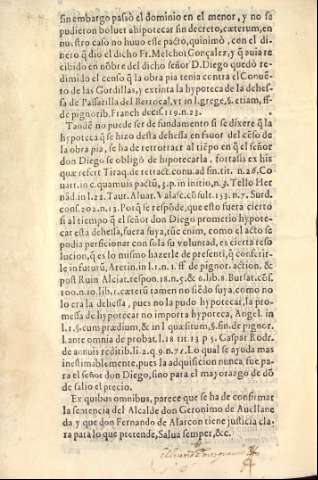 sin embargo passò el dominio en el menor, y no se
pudieron boluer ahipotecar sin decretio, cæterum, en
nuestro caso no huuo esse pacto, quinimò, con el di-
nero q̃ dio el dicho Fr. Melchor Gonçalez, y q̃ auia re
cibido en nõbre del dicho señor D. Diego quedò re-
dimido el censo q̃ la obra pia tenia contra el Conuẽ-
to de las Gordillas, y extinta la hypoteca de la dehes-
sa de Passarilla del Berrocal, vt in l. grege, §. etiam, ff.
de pignorib. Franch decis. 119. n. 23.
Tandẽ no puede ser de fundamento si se dixere q̃ la
hypoteca q̃ se hizo desta dehessa en fauor del cẽso de
la obra pia, se ha de retrotraer al tiẽpo en q̃ el señor
don Diego se obligò de hipotecarla, fortassis ex his
quæ refert Tiraq. de retract. conu. ad fin. tit. n. 26. Co
uarr. in c. quamuis pactũ, 3. p. in initio, n. 3. Tello Her
nãd. in l. 22. Taur. Aluar. Valasc. cõsult. 133. n. 7. Surd.
cons. 202. n. 13. Porq̃ se respõde, que esto fuera cierto
si al tiempo q̃ el señor don Diego prometio hypote-
car esta dehessa, fuera suya, tũc enim, como el acto se
podia perficionar con sola su voluntad, es cierta reso
lucion, q̃ es lo mismo hazerle de presenti, q̃ conferir-
le in futurũ, Aretin. in l. 1. n. 3. ff. de pignor. action. &
post Ruin Alciat. respon. 18. n. 5. & 6. lib. 8. Bursat. cõs.
100. n. 10. lib. 1. cæterũ tamen no siẽdo suya, como no
lo era la dehessa, pues no la pudo hypotecar, la pro-
messa de hypotecar no importa hypoteca, Angel. in
l. 1. §. cum prædium, & in l. quæsitum, §. fin. de pignor.
Lante omnia de probat. l. 18 tit. 13 p 5. Gaspar Rodr.
de annuis reditib. li. 2. q. 9. n. 71. Lo qual se ayuda mas
inestimablemente, pues la adquisicion nunca fue pa-
ra el señor don Diego, sino para el mayorazgo de dõ
de salio el precio.
Ex quibus omnibus, parece que se ha de confirmar
la sentencia del Alcalde don Geronimo de Auellane
da y que don Fernando de Alarcon tiene justicia cla
ra para lo que pretende, Salua semper, &c.